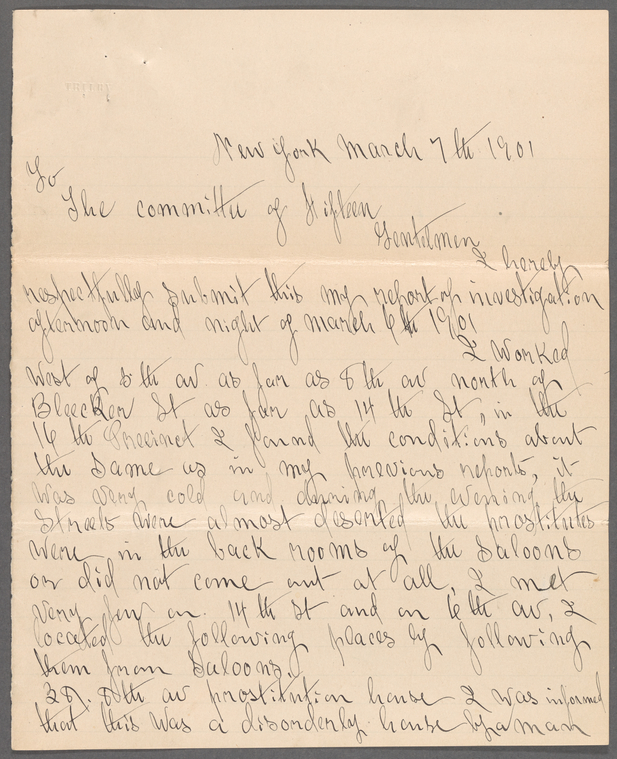 New York March 7th 1901
To
The committee of Fifteen
Gentelmen
I hereby
respectfully submit this my report of investigation
afternoon and night of march 6th 1901
I worked
West of 5th av. as far as 8th av north of
Bleecker St as far as 14th St, in the
16th Precinct I found the conditions about
the same as in my previous reports, it
was very cold and during the evening the
streets were almost deserted the prostitutes
were in the back rooms of the saloons
or did not come out at all, I met
very few on 14th St and on 6th av, I
located the following places by following
them from saloons.
8th av prostitution house I was informed
that this was a disorderly house by a man